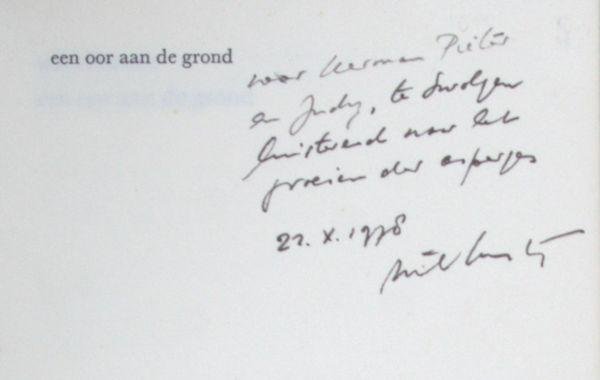 een oor aan de grond
voor Herman Pieter
en Judy, te Swolgen
luisterend naar het
groeien der asperges
22. X. 1978